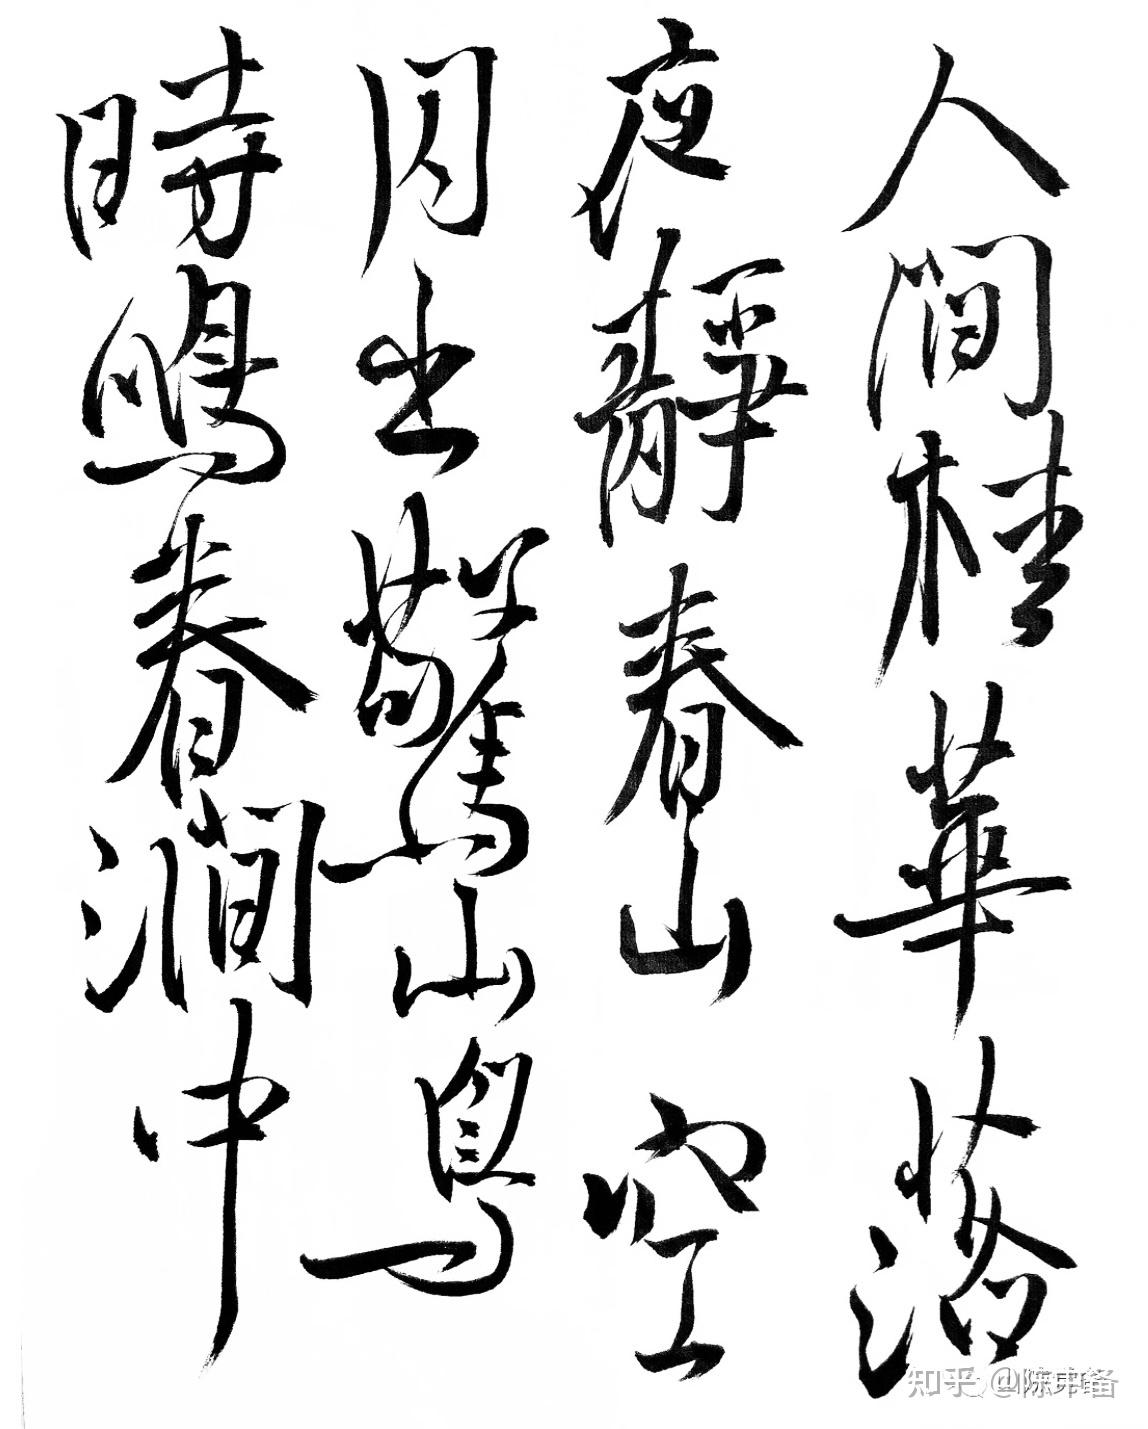 人間桂華落
夜靜春山空
月出驚山鳥
時鳴春澗中
知乎 @陈弗备